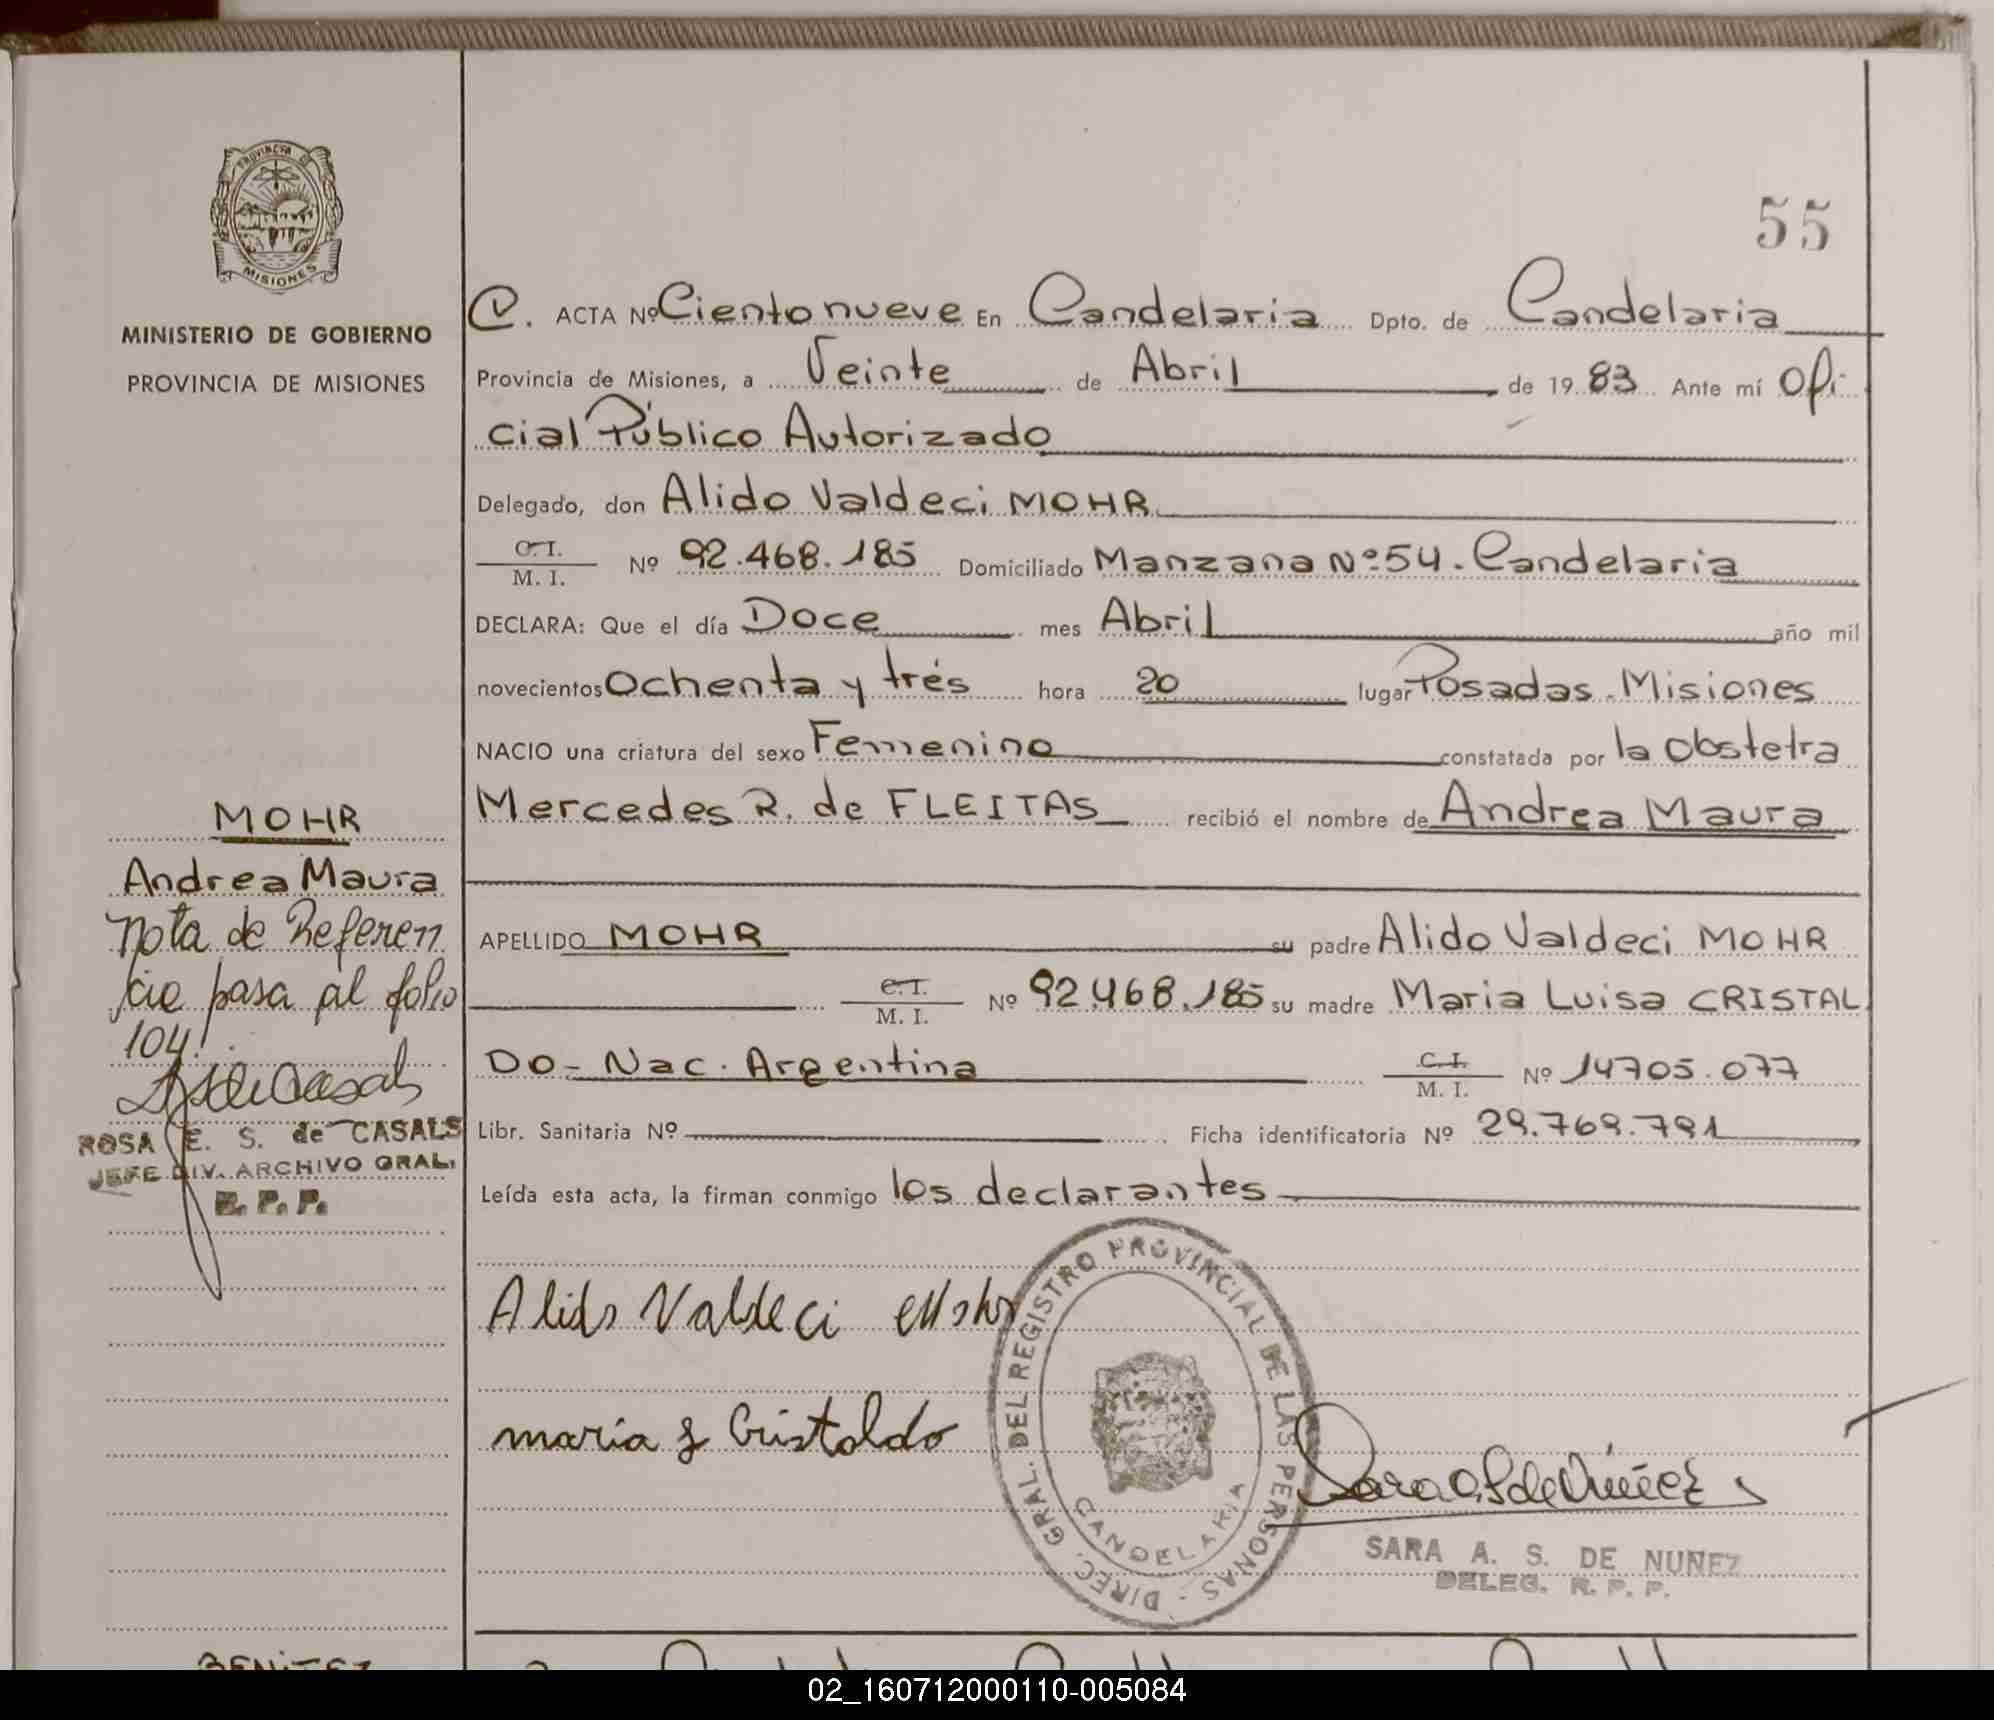 55
PROVINCIA DE
MISIONES
MINISTERIO DE GOBIERNO
PROVINCIA DE MISIONES
C. ACTA Nº Ciento nueve En Candelaria Dpto. de Candelaria
Provincia de Misiones, a Veinte de Abril de 1983 Ante mí Ofi
cial Público Autorizado
Delegado, don Alido Valdeci MOHR
C. I. / M. I. Nº 92.468.185 Domiciliado Manzana Nº 54. Candelaria
DECLARA: Que el día Doce mes Abril año mil
novecientos Ochenta y trés hora 20 lugar Posadas. Misiones
NACIO una criatura del sexo Femenino constatada por la Obstetra
Mercedes R. de FLEITAS recibió el nombre de Andrea Maura
APELLIDO MOHR su padre Alido Valdeci MOHR
C. I. / M. I. Nº 92.468.185 su madre Maria Luisa CRISTAL
DO - Nac. Argentina C. I. / M. I. Nº 14705.077
Libr. Sanitaria Nº Ficha identificatoria Nº 29.769.791
Leída esta acta, la firman conmigo los declarantes
MOHR
Andrea Maura
Nota de Referen
cia pasa al folio
104!
ROSA E. S. de CASALS
JEFE DIV. ARCHIVO GRAL.
R. P. P.
Alido Valdeci Mohr
maria L Cristaldo
DIREC. GRAL. DEL REGISTRO PROVINCIAL DE LAS PERSONAS -
CANDELARIA
SARA A. S. DE NUÑEZ
DELEG. R. P. P.
BENITEZ
02_160712000110-005084